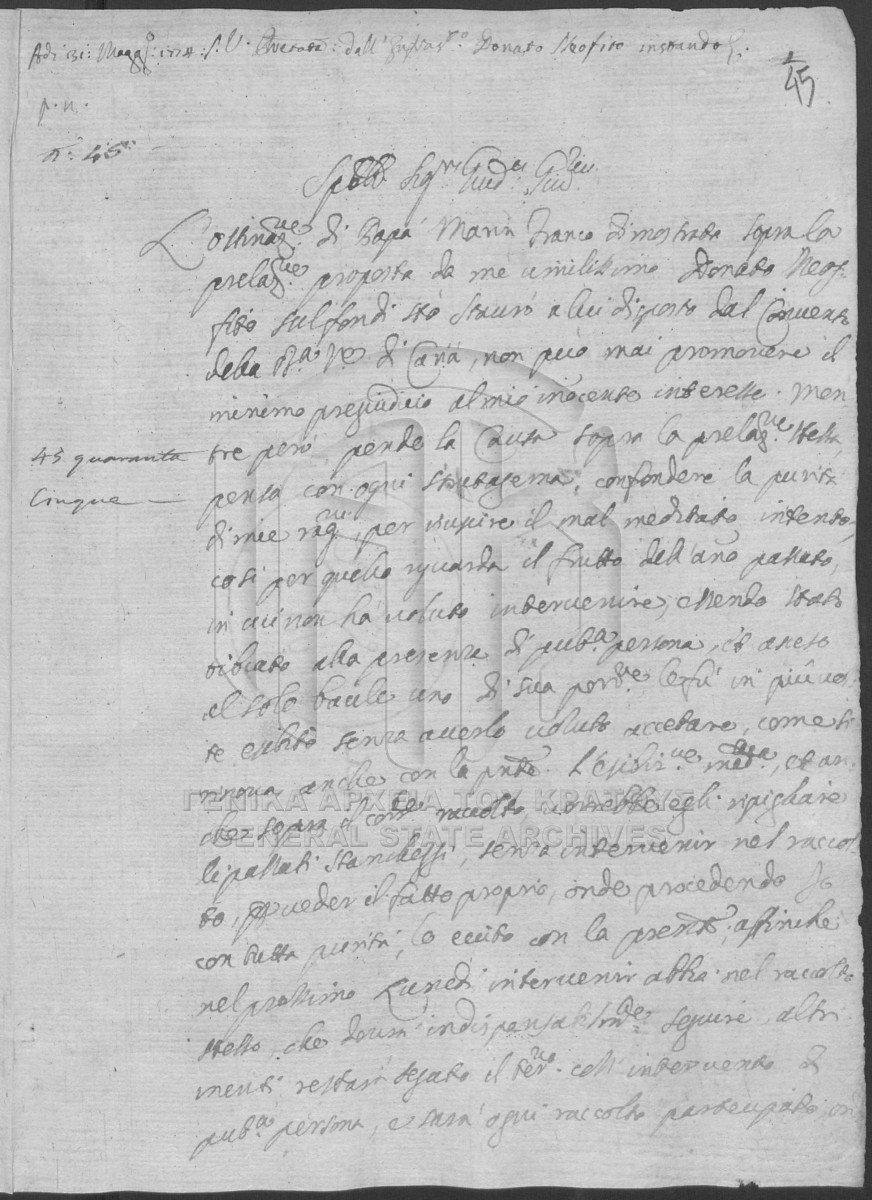 Adi 31: Magg.o 17 : S.V. Pntata: dall' Infras.to Donato Neofito instando
45
p. n.
n.o 45
Spbli Sig.ri Giud.ci
L'ostinaz.ne di Papà Marin Franco dimostrata sopra la
prelaz.ne proposta da me umilissimo Donato Neof-
fito sul fondi Sto Stauro a lui disposto dal Convento
della di Canà, non può mai promovere il
minimo pregiudicio al mio inocente interesse. Men
tre però pende la Causa sopra la prelaz.ne stessa
45 quaranta
Cinque
pensa con ogni stratagema, confondere la purità
di mie rag.ni, per riuscire il mal meditato intento,
così per quello riguarda il frutto dell'ano passato,
in cui non ha voluto intervenire, essendo stato
alla presenza di pub.ca persona, et
al solo baule uno di sua porz.ne le fù in più vol
te esibito senza averlo voluto accettare, come si
rinova anche con la pnte. L'esibiz.ne med.ma, et an
che sopra il cor.te raccolto, vorrebbe egli ripigliare
li passati stanchezzi, senza intervenir nel raccol
to, per veder il fatto proprio, onde procedendo Io
con tutta purità, lo eccito con la presente, affinche
nel prossimo Lunedì intervenir abbia nel raccolto
stesso, che dovrà indispensabilm.te seguire, altri
menti restarà segato il ter.no coll'intervento di
pub.ca persona, e sarà ogni raccolto partecipato, on
ΓΕΝΙΚΑ ΑΡΧΕΙΑ ΤΟΥ ΚΡΑΤΟΥΣ
GENERAL STATE ARCHIVES